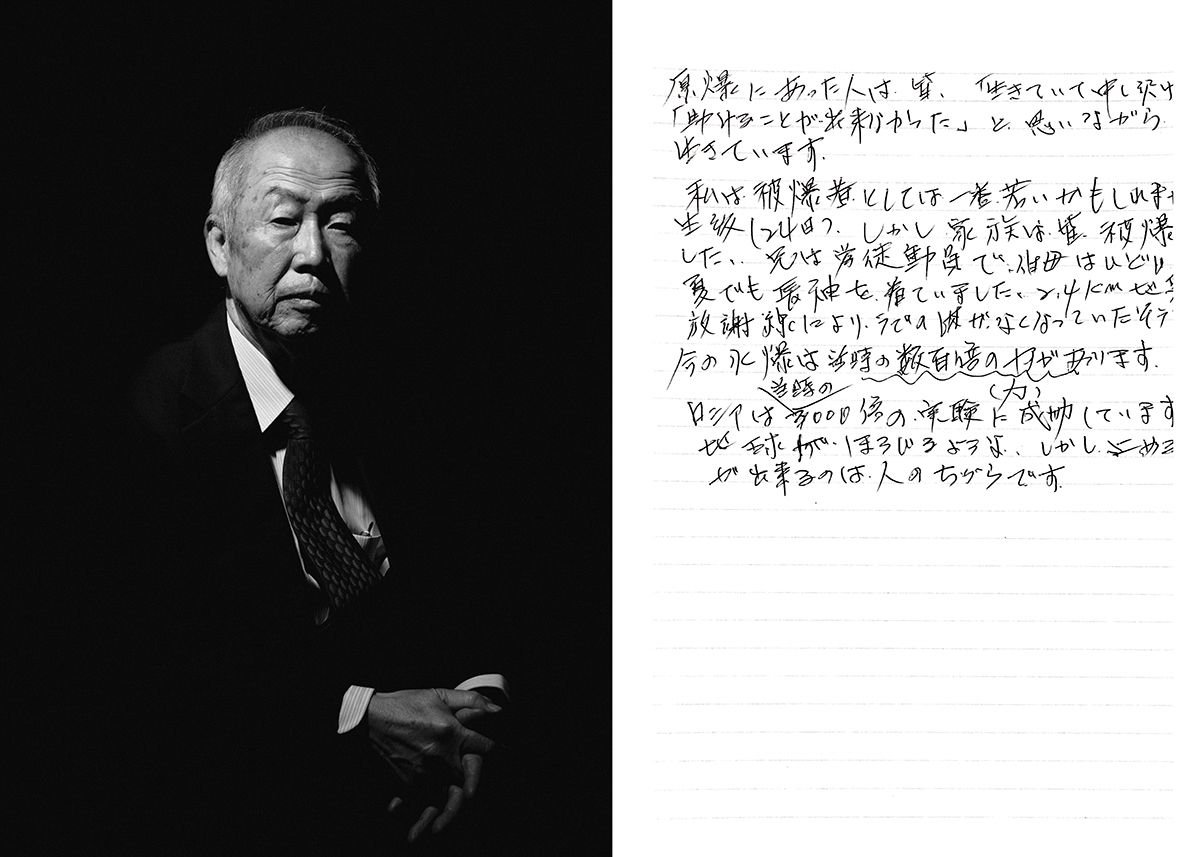 原爆にあった人は皆、「生きていて申し訳
「助けることが出来なかった」と、思いながら
生きています。
私は被爆者としては一番若いかもしれま
生後(24日)、しかし家族は皆、被爆
した、兄は学徒動員で、伯母はひどい
夏でも長袖を、着ていました、2.4kmで
放謝線により、うでの
がなくなっていたそう
今の水爆は当時の数百倍の力があります。
(力)
当時の
ロシアは3000倍の、実験に成功しています
地球が、ほろびるような、しかし、とめる
が出来るのは、人のちからです。